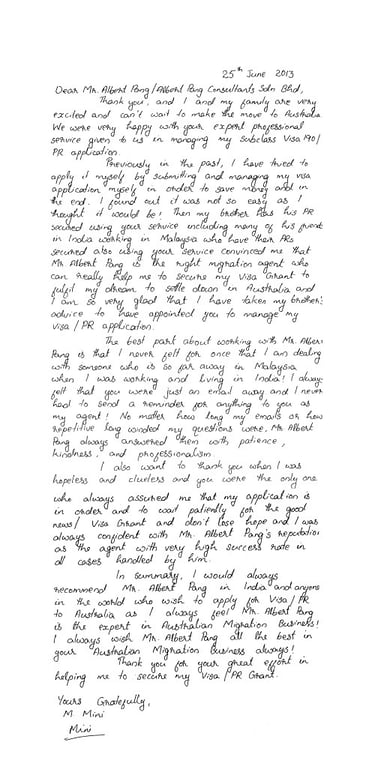 25th June 2013
Dear Mr. Albert Pang/Albert Pang Consultants Sdn Bhd,
Thank you, and I and my family are very
excited and can't wait to make the move to Australia.
We were very happy with your expert professional
service given to us in managing my Subclass Visa 190/
PR application.
Previously in the past, I have tried to
apply it myself by submitting and managing my visa
application myself in order to save money and in
the end, I found out it was not so easy as I
thought it would be! Then my brother has his PR
secured using your service including many of his friends
in India working in Malaysia who have their PRs
secured also using your service convinced me that
Mr. Albert Pang is the right migration agent who
can really help me to secure my Visa Grant to
fulfil my dream to settle down in Australia and
I am so very glad that I have taken my brother's
advice to have appointed you to manage my
Visa / PR application.
The best part about working with Mr. Albert
Pang is that I never felt for once that I am dealing
with someone who is so far away in Malaysia
when I was working and living in India! I always
felt that you were just an email away and I never
had to send a reminder for anything to you as
my agent! No matter how long my emails or how
repetitive long winded my questions were, Mr. Albert
Pang always answered them with patience,
kindness, and professionalism.
I also want to thank you when I was
hopeless and clueless and you were the only one
who always assured me that my application is
in order and to wait patiently for the good
news/ Visa Grant and don't lose hope and I was
always confident with Mr. Albert Pang's reputation
as the agent with very high success rate in
all cases handled by him.
In summary, I would always
recommend Mr. Albert Pang in India and anyone
in the world who wish to apply for Visa / PR
to Australia as I always feel Mr. Albert Pang
is the expert in Australian Migration Business!
I always wish Mr. Albert Pang all the best in
your Australian Migration Business always!
Thank you for your great effort in
helping me to secure my Visa / PR Grant.
Yours Gratefully,
M. Mini
Mini